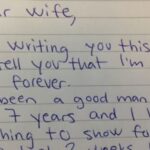 r Wife,
writing you this
tell you that I'm
forever.
been a good man
7 years and I
hing to show fo